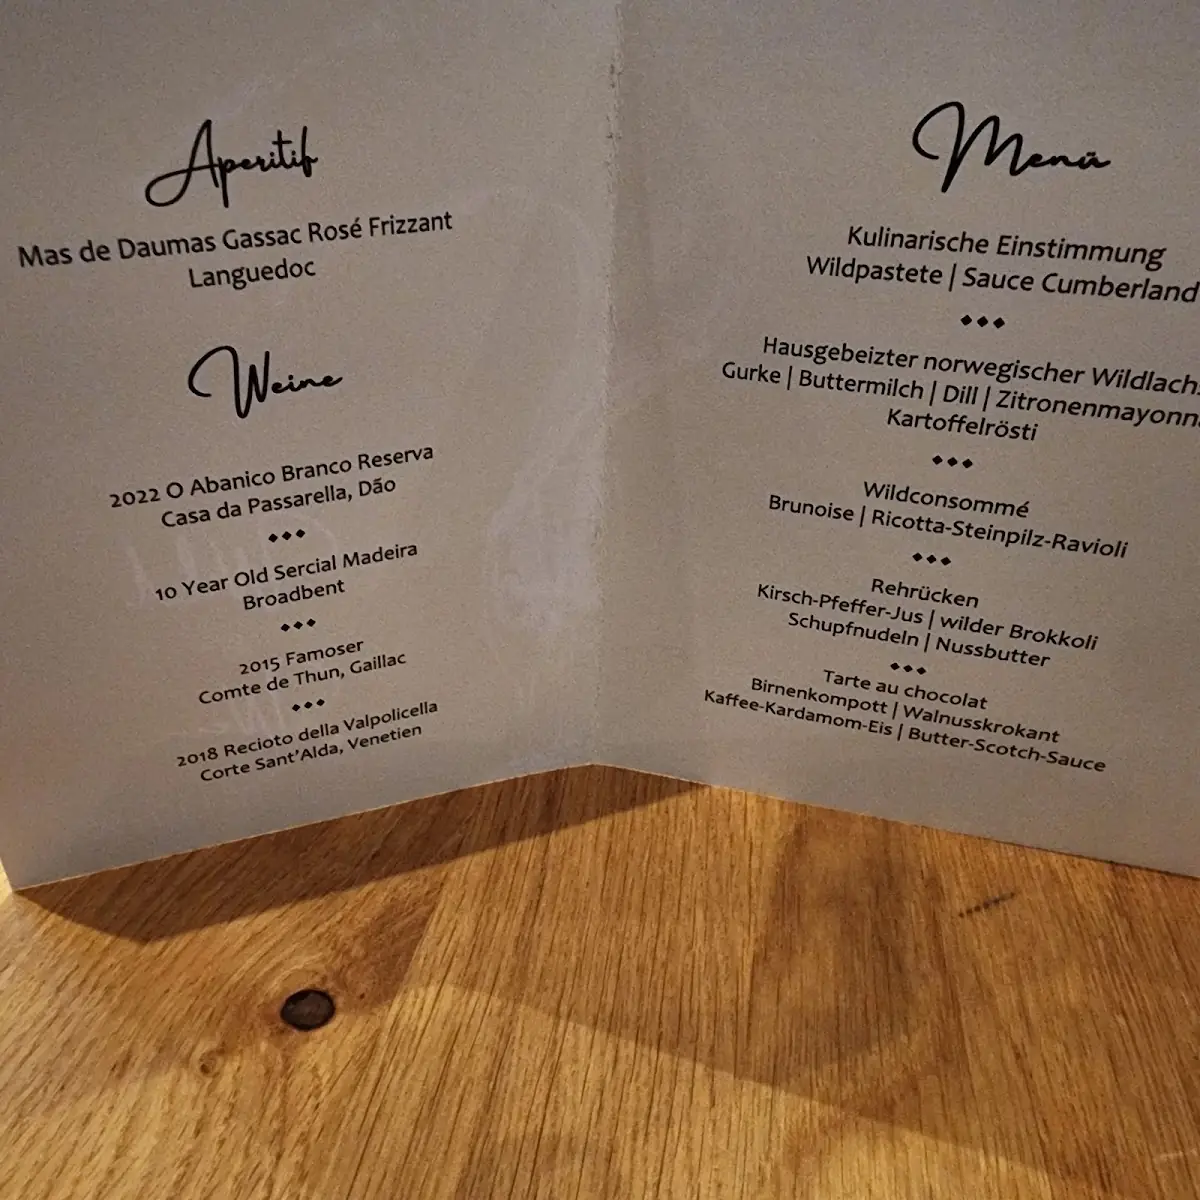 Aperitif
Mas de Daumas Gassac Rosé Frizzant
Languedoc
Weine
2022 O Abanico Branco Reserva
Casa da Passarella, Dão
10 Year Old Sercial Madeira
Broadbent
2015 Famoser
Comte de Thun, Gaillac
2018 Recioto della Valpolicella
Corte Sant'Alda, Venetien
Menü
Kulinarische Einstimmung
Wildpastete | Sauce Cumberland
Hausgebeizter norwegischer
Gurke | Buttermilch | Dill |
Kartoffelrösti
Wildconsommé
Brunoise | Ricotta-Steinpilz-Ravioli
Rehrücken
Kirsch-Pfeffer-Jus | wilder Brokkoli
Schupfnudeln | Nussbutter
Tarte au chocolat
Birnenkompott | Walnusskrokant
Kaffee-Kardamom-Eis | Butter-Scotch-Sauce